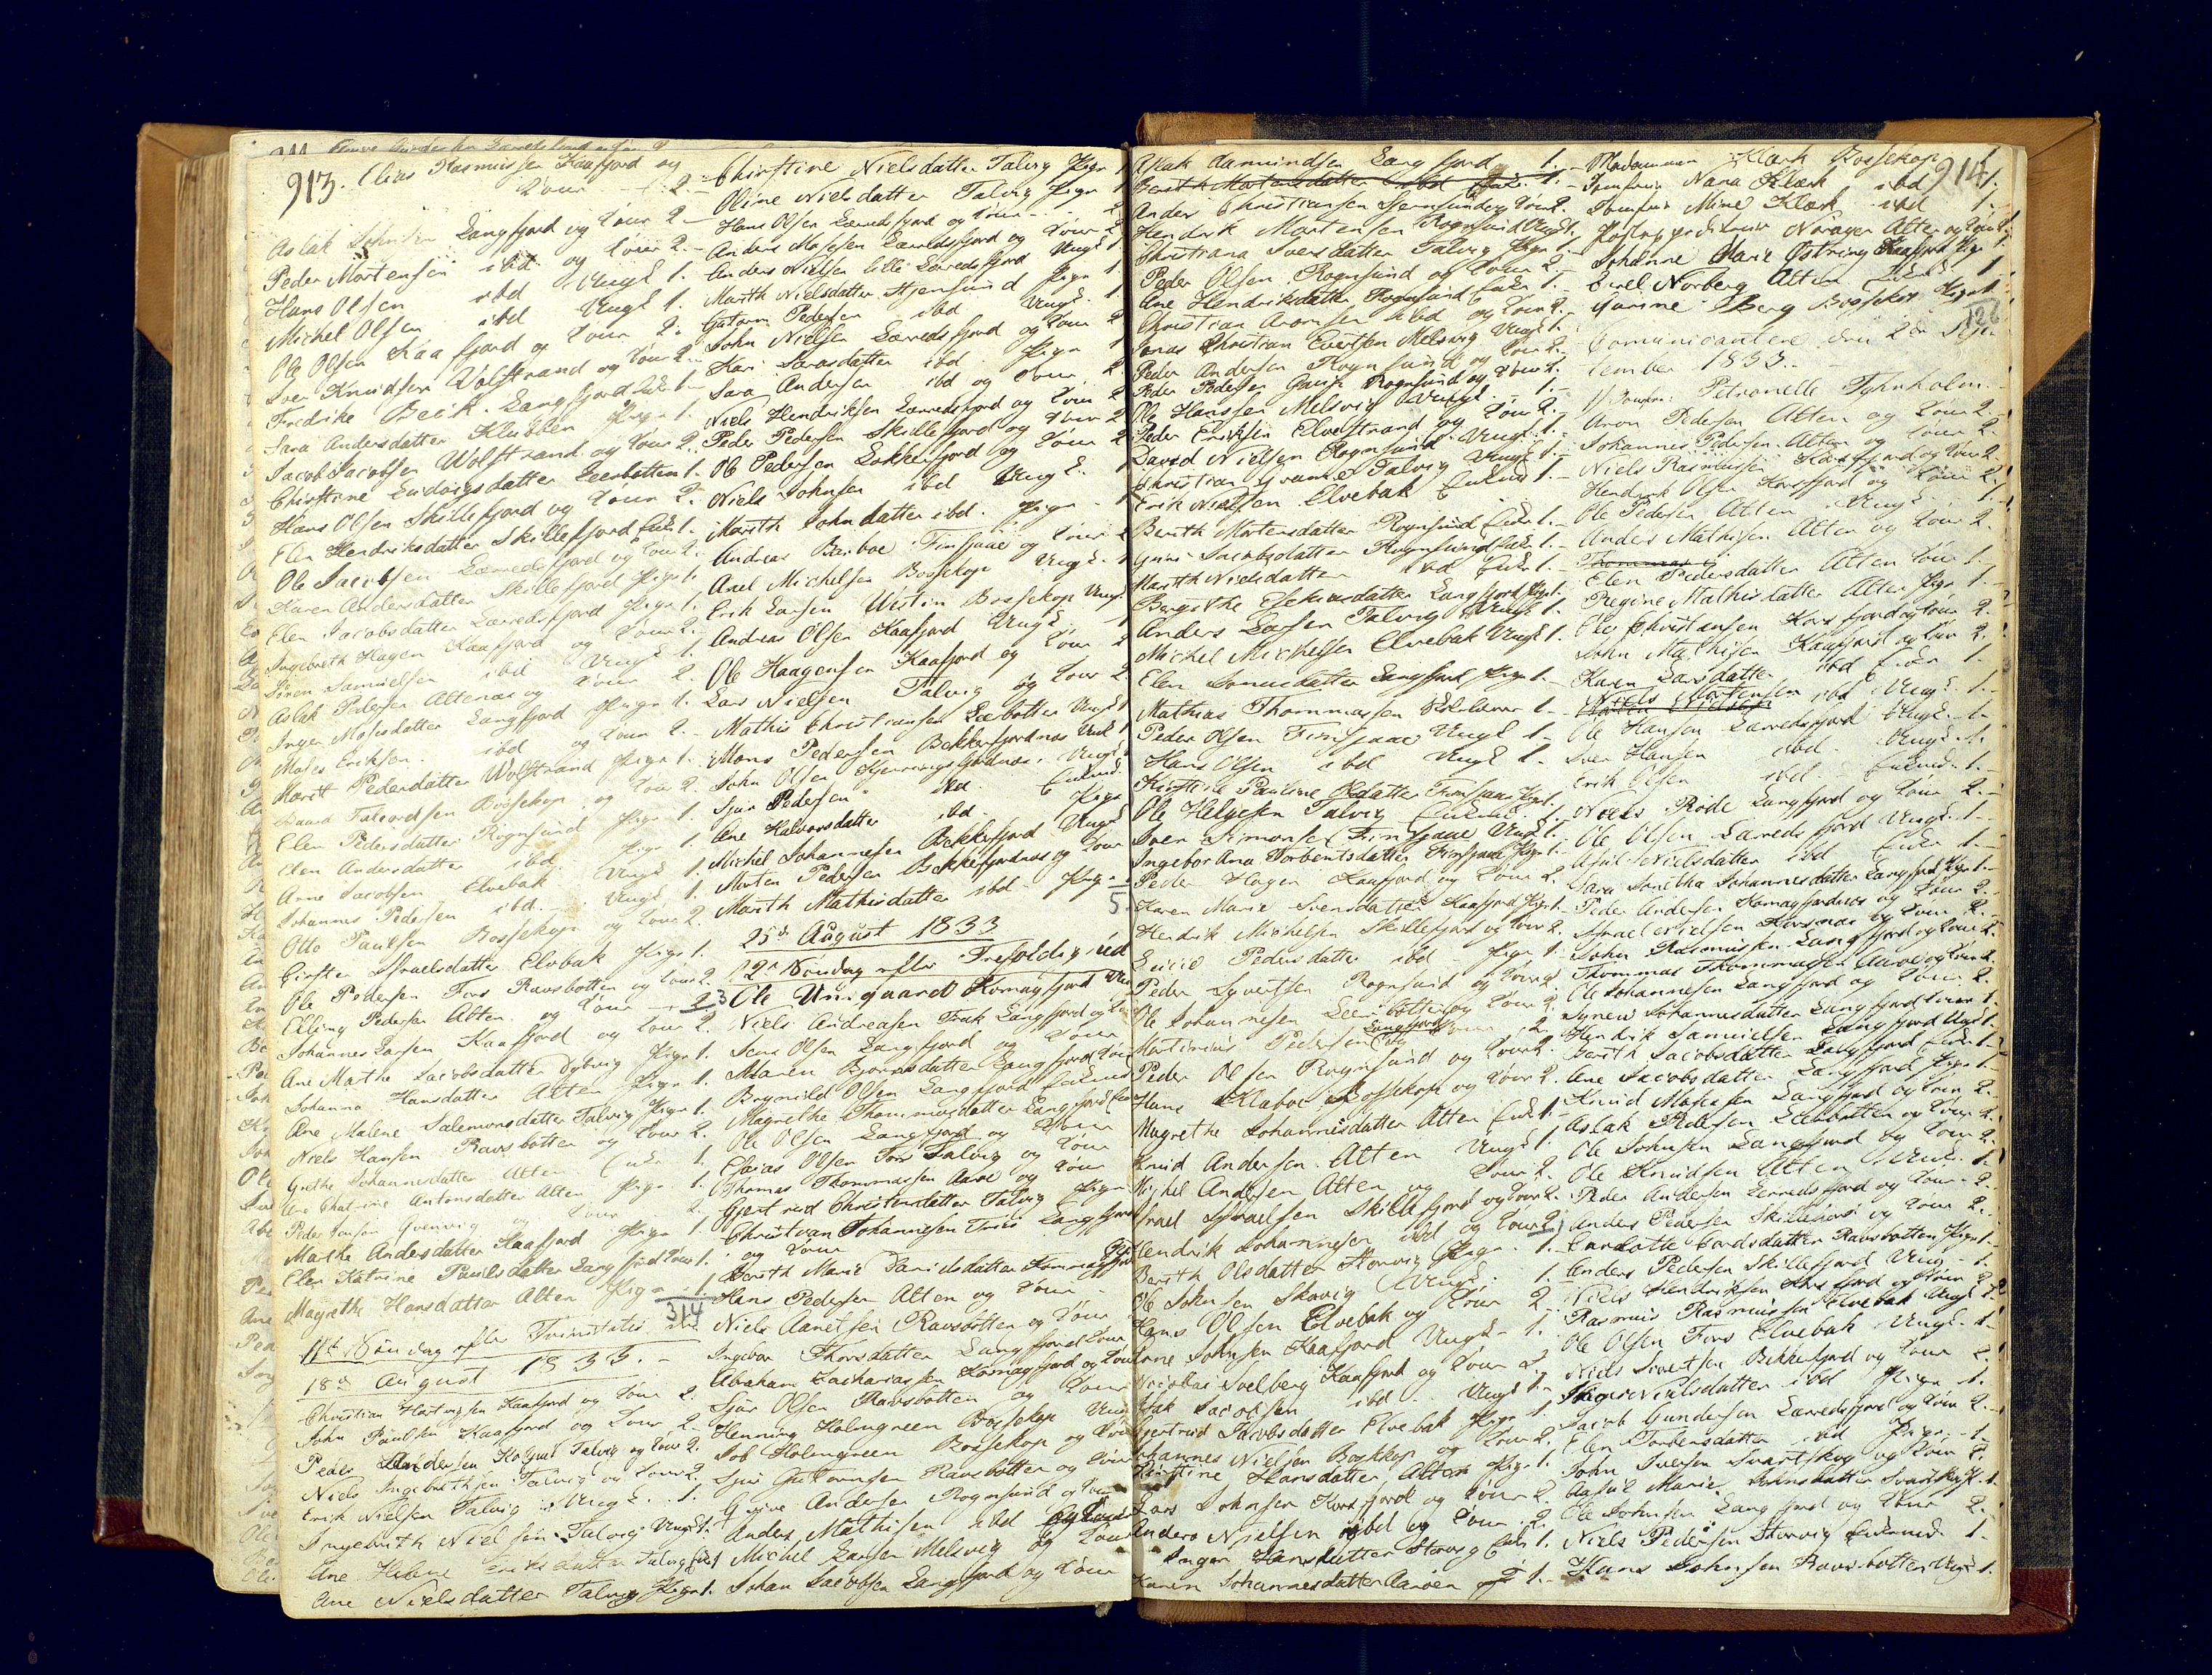 913.
Elias Rasmussen Kaafjord og
Kone 2.
Aslak Johnsen Langfjord og Kone 2
Peder Mortensen ibd. og Kone 2.
Hans Olsen ibd Ungk 1.
Michel Olsen ibd Ungk 1.
Ole Olsen Kaafjord og Kone 2.
Iver Knudsen Wolstrand og Kone 2
Fredrike Beck Langfjord Enke 1
Sara Andersdatter Klubben Pige 1.
Jacob Jacobsen Wolstrand og Kone 2.
Christine Ludvigsdatter Leerbotten 1
Hans Olsen Skillefjord og Kone 2.
Elen Hendriksdatter Skillefjord Enke 1.
Ole Jacobsen Lerredsfjord og Kone 2.
Karen Andersdatter Skillefjord Pige 1.
Elen Jacobsdatter Lerredsfjord Pige 1.
Ingebreth Hagen Kaafjord og Kone 2.
Søren Samuelsen ibd Ungk 1.
Aslak Pedersen Altenæs og Kone 2.
Inger Mosesdatter Langfjord Pige 1.
Moses Eriksen ibd og Kone 2.
Marit Pedersdatter Wolstrand Pige 1.
Bossekop og Kone 2.
Elen Pedersdatter Rognsund Pige 1.
Elen Andersdatter ibd Pige 1.
Arne Jacobsen Elvebak Ungk 1.
Johannes Pedersen ibd. Ungk 1.
Otto Paulsen Bossekop og Kone 2.
Israelsdatter Elvbak Pige 1.
Ole Pedersen Fors Ravsbotten og Kone 2
Elling Pedersen Alten og Kone 2
Johannes Larsen Kaafjord og Kone 2.
Ane Marthe Jacobsdatter Pige 1.
Johanna Hansdatter Alten Pige 1.
Ane Malene Salemonsdatter Talvig Pige 1.
Niels Hansen Ravsbotten og Kone 2.
Grethe Johannesdatter Alten Enke 1.
Ane Chatrine Antonsdatter Alten Pige 1.
Peder Jensen Qvenvig og Kone 2.
Marthe Andersdatter Kaafjord Pige 1.
Elen Katrine Paulsdatter Langfjord Kone 1.
Magrethe Hansdatter Alten Pige 1.
314
11te Søndag efter Trinitatis den
18de August 1833.
Christian Hartvigsen Kaafjord og Kone 2.
John Paulsen Kaafjord og Kone 2
Peder Andersen Talvig og Kone 2.
Niels Ingebrethsen Talvig og Kone 2.
Erik Nielsen Talvig Ungk. 1.
Ingebrith Nielsen Talvig Ungk 1.
Ane Helene Eriksdatter Talvig
Ane Nielsdatter Talvig Pige 1.
Christine Nielsdatter Talvig Pige 1
Oline Nielsdatter Talvig Pige 1
Hans Olsen Lerredsfjord og Kone 2
Anders Mosesen Lerredsfjord og Kone 2
Anders Nielsen lille Lerredsfjord Ungk 1
Marith Nielsdatter Stjernsund Pige 1
Guttorm Pedersen ibd Ungk. 1
John Nielsen Lerredsfjord og Kone 2
Kari Larsdatter ibd. Pige 1
Sara Andersen ibd og Kone 2
Niels Hendriksen Lerredsfjord og Kone 2
Peder Pedersen Skillefjord og Kone 2
Ole Pedersen Lokkerfjord og Kone 2
Niels Johnsen ibd Ungk. 1
Marith Johnsdatter ibd. Pige 1
Andreas Barboe Finsaae og Kone 2
Axel Michelsen Bossekop Ungk. 1
Erik Larsen Westin Bossekop Ungk
Andreas Olsen Kaafjord Ungk 1
Ole Haagensen Kaafjord og Kone 2
Lars Nielsen Talvig og Kone 2
Mathis Christiansen Leerbotten Ungk 1
Mons Pedersen Bekkerfjordnæs Ungk 1
John Olsen Ungk
Siur Pedersen ibd. Enkem.
Ane Halvorsdatter ibd. Pige
Michel Johannesen Bekkerfjord Ungk
Morten Pedersen Bekkerfjordnæs og Kone
Marith Mathisdatter ibd. Pige
5
25de August 1833
12te Søndag efter Trefoldighed
3 Ole Uniquared Komagfjord
Niels Andreasen Falk Langfjord og
Jens Olsen Langfjord og Kone
Maren Bjørnsdatter Langfjord Kone
Brynild Olsen Langfjord Enkem
Magrethe Thommasdatter Langfjord
Ole Olsen Langfjord og Kone
Esaias Olsen Fors Talvig og Kone
Thomas Thommassen Aarøe og Kone
Gjertrud Christensdatter Talvig Pige
Christian Johannesen Langfjord
og Kone
Berith Marie Danielsdatter Kommagfjord
Hans Pedersen Alten og Kone
Niels Aanetsen Ravsbotten og Kone
Ingebor Thorsdatter Langfjord Kone
Abraham Zachariassen Komagfjord og Kone
Sjur Olsen Ravsbotten og Kone
Henning Holmgreen Bossekop Ungk
Job Holmgreen Bossekop og Kone
Sjur Guttormsen Ravsbotten og Kone
Andersen Rognsund og Kone
Anders Mathisen ibd
Michel Larsen Melsvig og Kone
Johan Jacobsen Langfjord og Kone
914
Aslak Hamundsen Langfjord 1.
Berith Mortensdatter ibd Enke. 1.
Anders Christiansen Stjernsund og Kone 2.
Hendrik Mortensen Rognsund Ungk 1.
Christiana Iversdatter Talvig Pige 1
Peder Olsen Rognsund og Kone 2
Ane Hendriksdatter Rognsund Enke 1.
Christian Aronsen ibd og Kone 2.
Jonas Christian Evertsen Melsvig Ungk 1.
Peder Andersen Rognsund og Kone 2.
Peder Pedersen Rognsund og Kone 2.
Ole Hanssen Melsvig Ungk. 1.
Peder Eriksen Elvestrand og Kone 2.
David Nielsen Rognsund Ungk. 1.
Christian Talvig Ungk 1.
Erik Nielsen Elvebak Enkem 1.
Berith Mortensdatter Rognsund Enke 1.
Jacobsdatter Rognsund Enke 1.
Marith Nielsdatter ibd Enke 1
Bergithe Langfjord Pige 1.
Anders Larsen Talvig Ungk 1.
Michel Michelsen Elvebak Ungk 1.
Elen Jonasdatter Langfjord Pige 1.
Mathias Thommassen Skolelærer 1
Peder Olsen Finsaae Ungk 1
Hans Olsen ibd Ungk 1
Kirstine Pauline Olsdatter Finsaae Pige 1.
Ole Helgesen Talvig Enkem. 1.
Iver Simonsen Finsaae Ungk 1.
Ingebor Ana Torbentsdatter Finsaae Pige 1
Peder Hagen Kaafjord og Kone 2.
Karen Marie Svensdatter Kaafjord Pige 1.
Hendrik Michelsen Skillefjord og Kone 2.
Lucie Pedersdatter ibd Pige 1.
Peder Syvertsen Rognsund og Kone 2.
Ole Johannesen Leerbotten og Kone 2
Martinus Pedersen Langfjord og Kone 2
Peder Olsen Rognsund og Kone 2.
Hans Klaboe Bossekop og Kone 2.
Magrethe Johannesdatter Alten Enke 1.
Knud Andersen Alten Ungk 1
Michel Andersen Alten og Kone 2.
Israel Israelsen Skillefjord og Kone 2.
Hendrik Johannesen ibd og Kone 2
Berith Olsdatter Storvig Pige 1.
Ole Johnsen Skovig Ungk 1.
Hans Olsen Elvebak og Kone 2
Arne Johnsen Kaafjord Ungk 1.
Jacobus Soelberg Kaafjord og Kone 2
Isak Jacobsen ibd Ungk 1
Gjertrud Jacobsdatter Elvebak Pige 1
Johannes Nielsen Bossekop og Kone 2.
Kirstine Hansdatter Alten Pige 1.
Lars Johnsen Korsfjord og Kone 2.
Anders Nielsen ibd og Kone 2
Inger Hansdatter Storvig Enke 1.
Karen Johannesdatter Aarøen 1.
Madammen Klærk Bossekop 1
Jomfrue Nana Klærk ibd 1.
Jomfrue Mine Klærk ibd 1.
Postexpediteur Norager Alten og Kone 2.
Johanne Marie Østring Kaafjord Pige 1
Norberg Alten Enkem 1
Berg Bossekop Pige 1
126
Comunicantere den 2den September
1833.
Jomfru Petronelle Fyhnholm
Aron Pedersen Alten og Kone 2.
Johannes Pedersen Alten og Kone 2.
Niels Rasmussen Korsfjord og Kone 2
Hendrik Olsen Korsfjord og Kone 2.
Ole Pedersen Alten Ungk 1.
Anders Mathisen Alten og Kone 2.
Elen Pedersdatter Alten Kone 1.
Regine Mathisdatter Alten Pige 1.
Ole Christiansen Korsfjord og Kone 2.
John Mathisen Kaafjord og Kone 2.
Karen Larsdatter ibd Enke 1.
Niels Mortensen ibd Ungk. 1.
Ole Hansen Lerredsfjord Ungk. 1.
Iver Hansen ibd. Ungk. 1.
Erik Olsen ibd. Enkem. 1.
Noack Røde Langfjord og Kone 2.
Ole Olsen Lerredsfjord Ungk. 1.
Nielsdatter ibd Enke 1.
Sara Johannesdatter Langfjord Pige 1.
Peder Andersen Komagfjordnæs og Kone 2.
Israel Nielsen Korsnæs og Kone 2.
John Rasmussen Langfjord og Kone 2.
Thommas Thommassen Aarøe og Kone 2.
Ole Johannesen Langfjord og Kone 2.
Synev Johannesdatter Langfjord Kone 1.
Hendrik Samuelsen Langfjord Ungk 1.
Berith Jacobsdatter Langfjord Enke 1
Ane Jacobsdatter Langfjord Pige 1
Knud Mosesen Langfjord og Kone 2.
Aslak Pedersen Leerbotten og Kone 2.
Ole Johnsen Langfjord og Kone 2.
Ole Knudsen Alten Ungk. 1.
Peder Andersen Lerredsfjord og Kone 2.
Anders Pedersen Skillefjord og Kone 2.
Carlotte Cordsdatter Ravsbotten Pige 1
Anders Pedersen Skillefjord Ungk 1.
Niels Hendriksen Korsfjord og Kone 2
Rasmus Rasmussen Elvebak Ungk 1.
Ole Olsen Fors Elvebak Ungk. 1.
Niels Sivertsen Bekkefjord og Kone 2.
Nielsdatter ibd Pige 1.
Jacob Gundersen Lerredsfjord og Kone 2.
Elen Torbensdatter ibd Pige 1.
John Iversen Svartskog og Kone 2.
Marie Johnsdatter Svartskog 1.
Ole Johnsen Langfjord og Kone 2.
Niels Pedersen Storvig Enkemd. 1.
Hans Johnsen Ravsbotten Ungk 1.